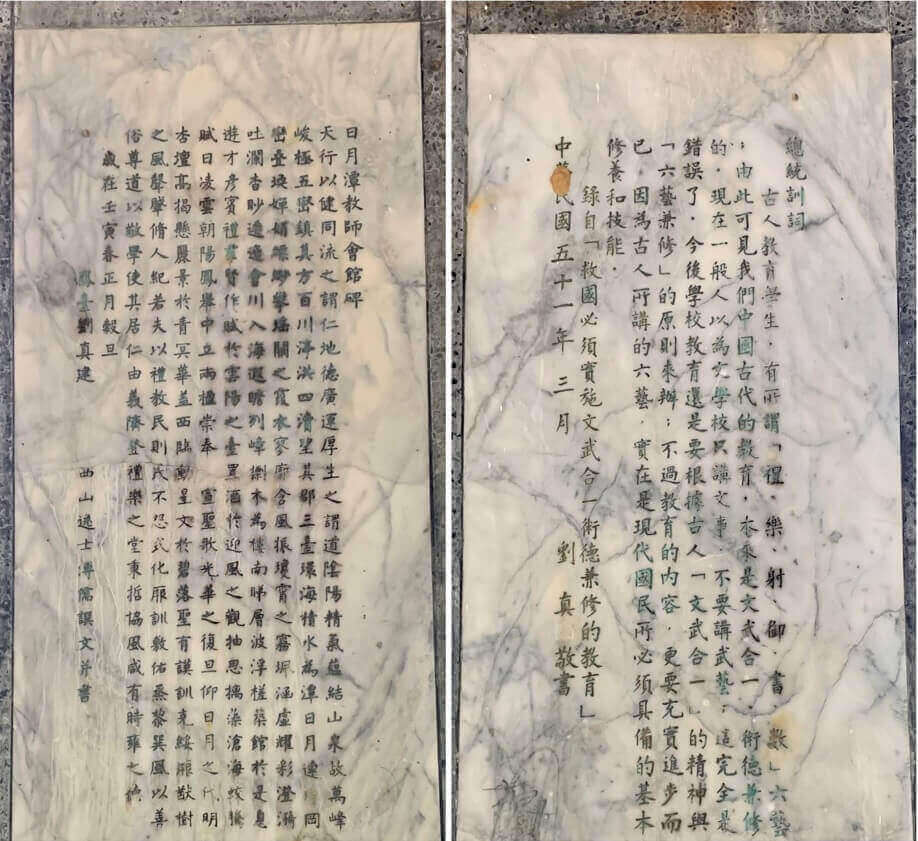 日月潭教師會館碑
天行以健同流之謂仁地德廣運厚生之謂道陰陽精氣蘊結山泉故萬峰
峻極五嶽鎮其方百川渟洪四瀆望其郡三臺環海積水為潭日月連岡
巒疊瑛嬋娟縹緲攀瑤關之霞衣寥廓含風振瓊霄之霧珮涵虛耀彩澄漪
吐瀾杳眇逶迤會川入海遐瞻列嶂捌木為樓南睇層波浮槎築館於是息
遊才彥賓禮羣賢作賦於雲陽之臺置酒於迎風之觀抽思摛藻滄海蛟騰
賦日凌雲朝陽鳳舉中立兩楹崇奉 宣聖歌光華之復旦仰日月之代明
杏壇高揭懸麗景於青冥華蓋西臨動星文於碧落聖有謨訓克綏厥猷樹
之風聲肇脩人紀若夫以禮教民則民不忍弍化厥訓敷佑蒸黎巽風以善
俗尊道以敬學使其居仁由義隮登禮樂之堂東哲協風咸有時雍之
歲在壬寅春正月穀旦
鳳臺劉真建 西山逸士溥儒譔文并書
總統訓詞
古人教育學生，有所謂「禮、樂、射、御、書、數」六藝
；由此可見我們中國古代的教育，本來是文武合一、術德兼修
的，現在一般人以為文學校只講文事，不要講武藝；這完全是
錯誤了，今後學校教育還是要根據古人「文武合一」的精神與
「六藝兼修」的原則來辦；不過教育的內容，更要充實進步而
已，因為古人所講的六藝，實在是現代國民所必須具備的基本
修養和技能，
錄自「救國必須實施文武合一術德兼修的教育」
中華民國五十一年三月 劉真敬書